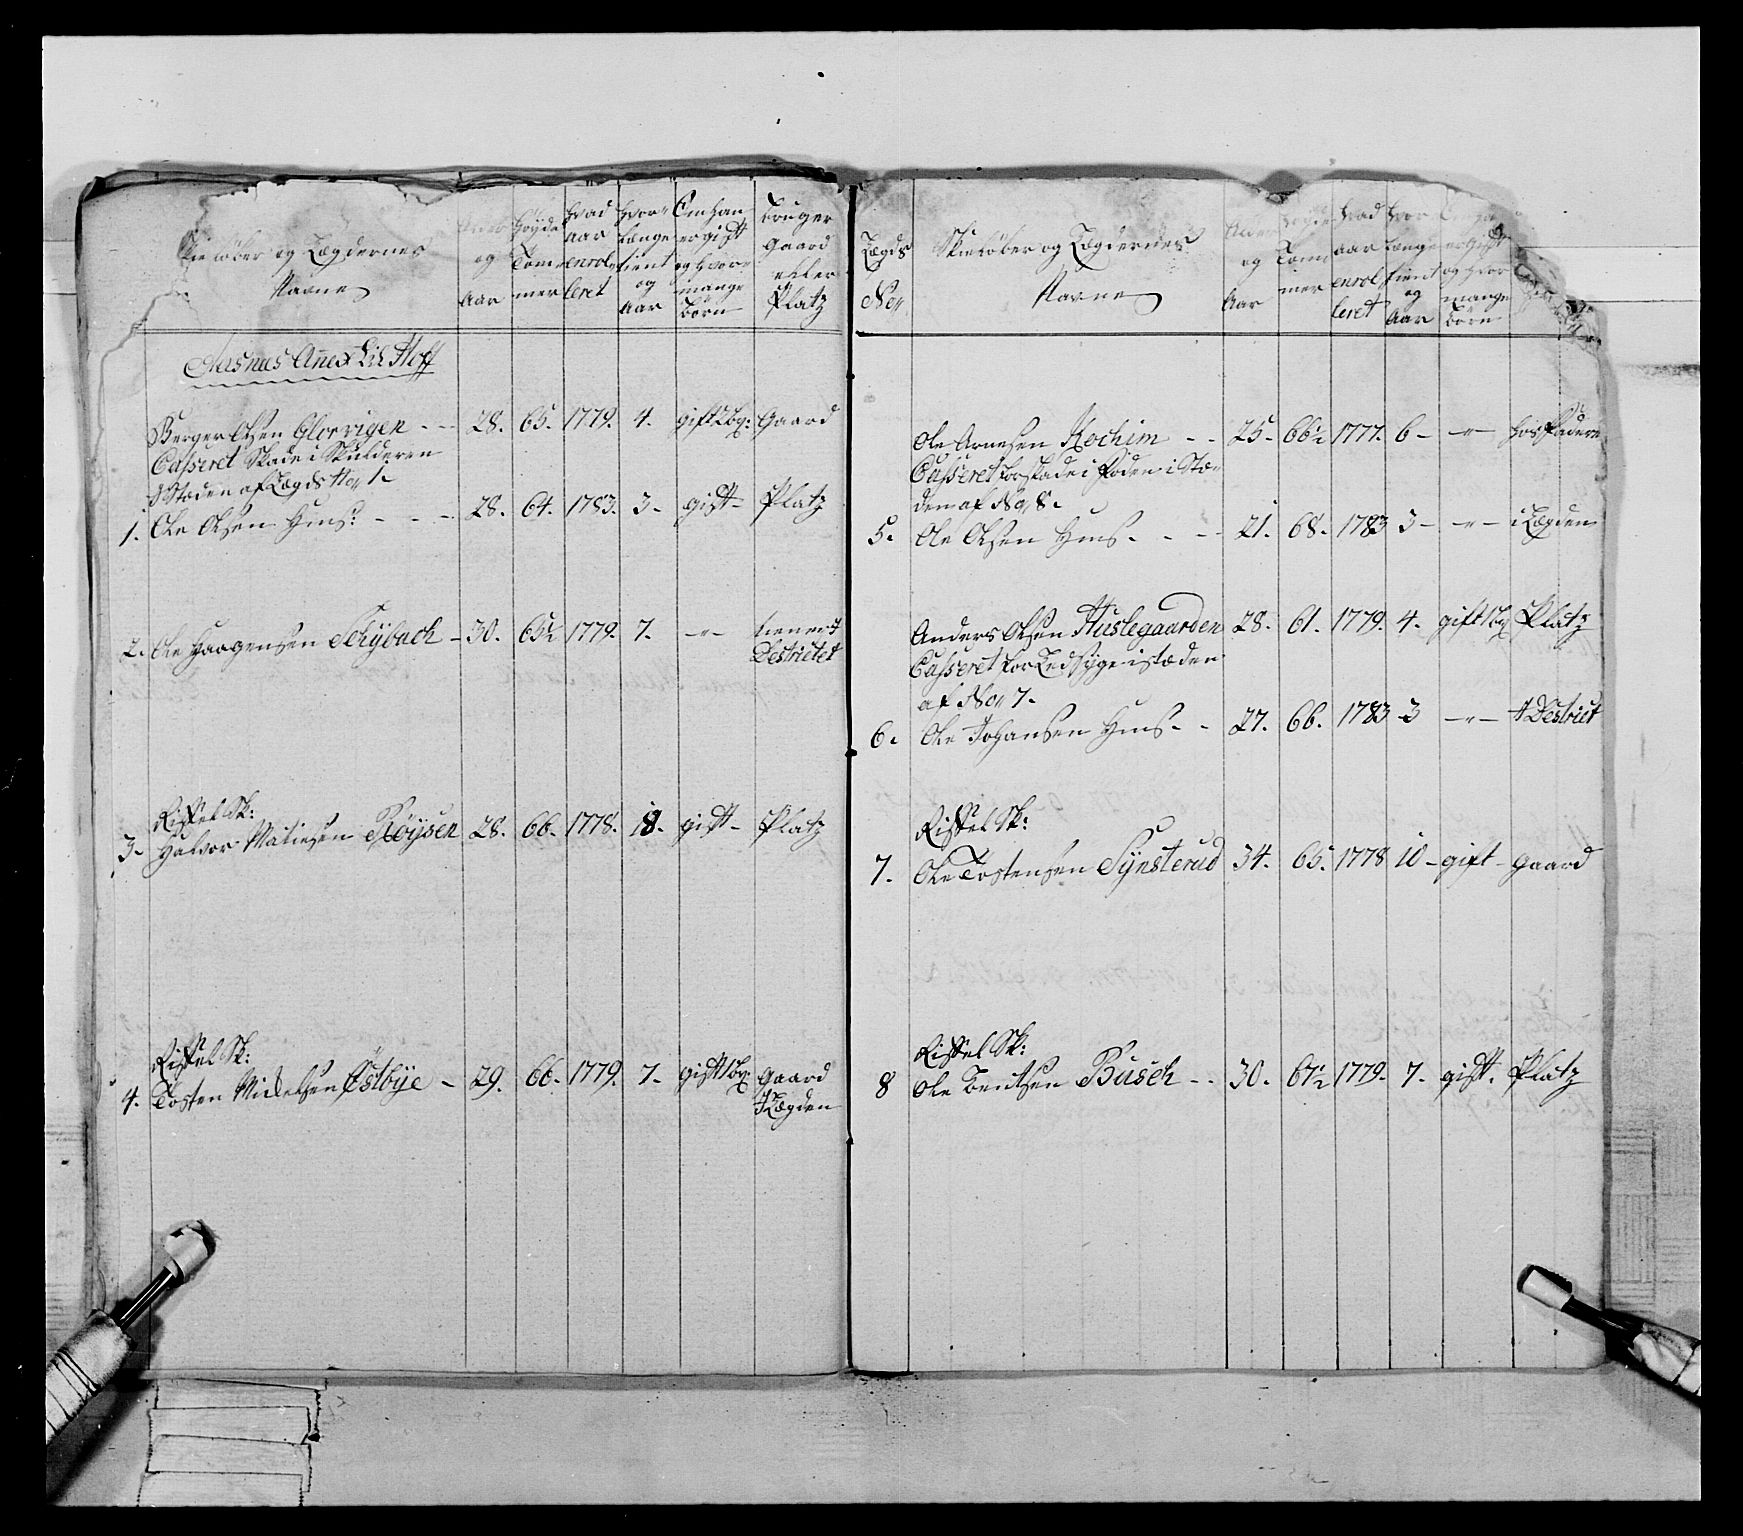 Skieløber og Lægdernes
Navne
Alder og Aar
Høyde Tommer
hvad aar enrolleret
hvor længe tient og Aar
Om han er gift og hvor mange Børn
bruger Gaard eller Platz
Aasnæs Anex til Hoff
Berger Olsen Glorvigen - - 28. 65. 1779. 4. gift 2 bø: Gaard
Casseret Skade i Skulderen
I Stæden af Lægds No 1.
1. Ole Olsen Hms: - - - 28. 64. 1783. 3 - gift - Platz
2. Ole Haagensen Schÿbach - 30. 65½ 1779. 7. -"- tiener i
Destrictet
Riffel Sk:
3. Halvor Matiesen Røÿsen 28. 66. 1778. 8. gift - Platz
Riffel Sk:
4. Tosten Mickelsen Østbÿe - 29. 66. 1779. 7. gift 1 bø: gaard
I Lægden
Lægds No
Skieløber og Lægdernes
Navne
Alder og Aar
Høyde Tommer
hvad aar enrolleret
hvor længe tient og Aar
Om han er gift og hvor mange Børn
Ole Arnesen Kochim - - 25. 66½ 1777. 6 - -"- hos Faderen
Casseret for Skade i Foden i Stæ-
den af No 8.
5. Ole Olsen Hms - - - 21. 68. 1783 3 - -"- i Lægden
Anders Olsen Huslegaarden 28. 61. 1779. 4. gift 1 bø Platz
Casseret for Ledsyge i stæden
af No 7.
6. Ole Johansen Hms - - 27. 66. 1783 3 -"- I Destrict
Riffel Sk:
7. Ole Tostensen Sÿnsterud 34. 65. 1778 10 - gift - gaard
Riffel Sk:
8 Ole Bentsen Busch - - 30. 67½ 1779. 7. gift. Platz